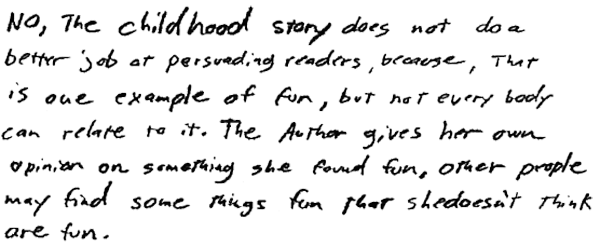 No, The childhood story does not do a
better job at persuading readers, because, That
is one example of fun, but not every body
can relate to it. The Author gives her own
opinion on something she found fun, other people
may find some things fun that shedoesn't think
are fun.